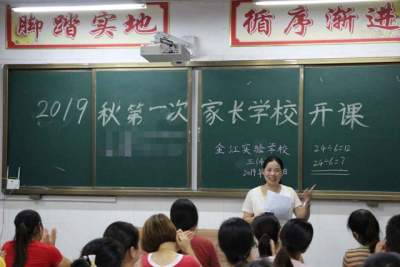 脚踏实地
循序渐进
2019 秋第一次 家长学校 开课
金江实验学校
24÷6=12
24÷6=?